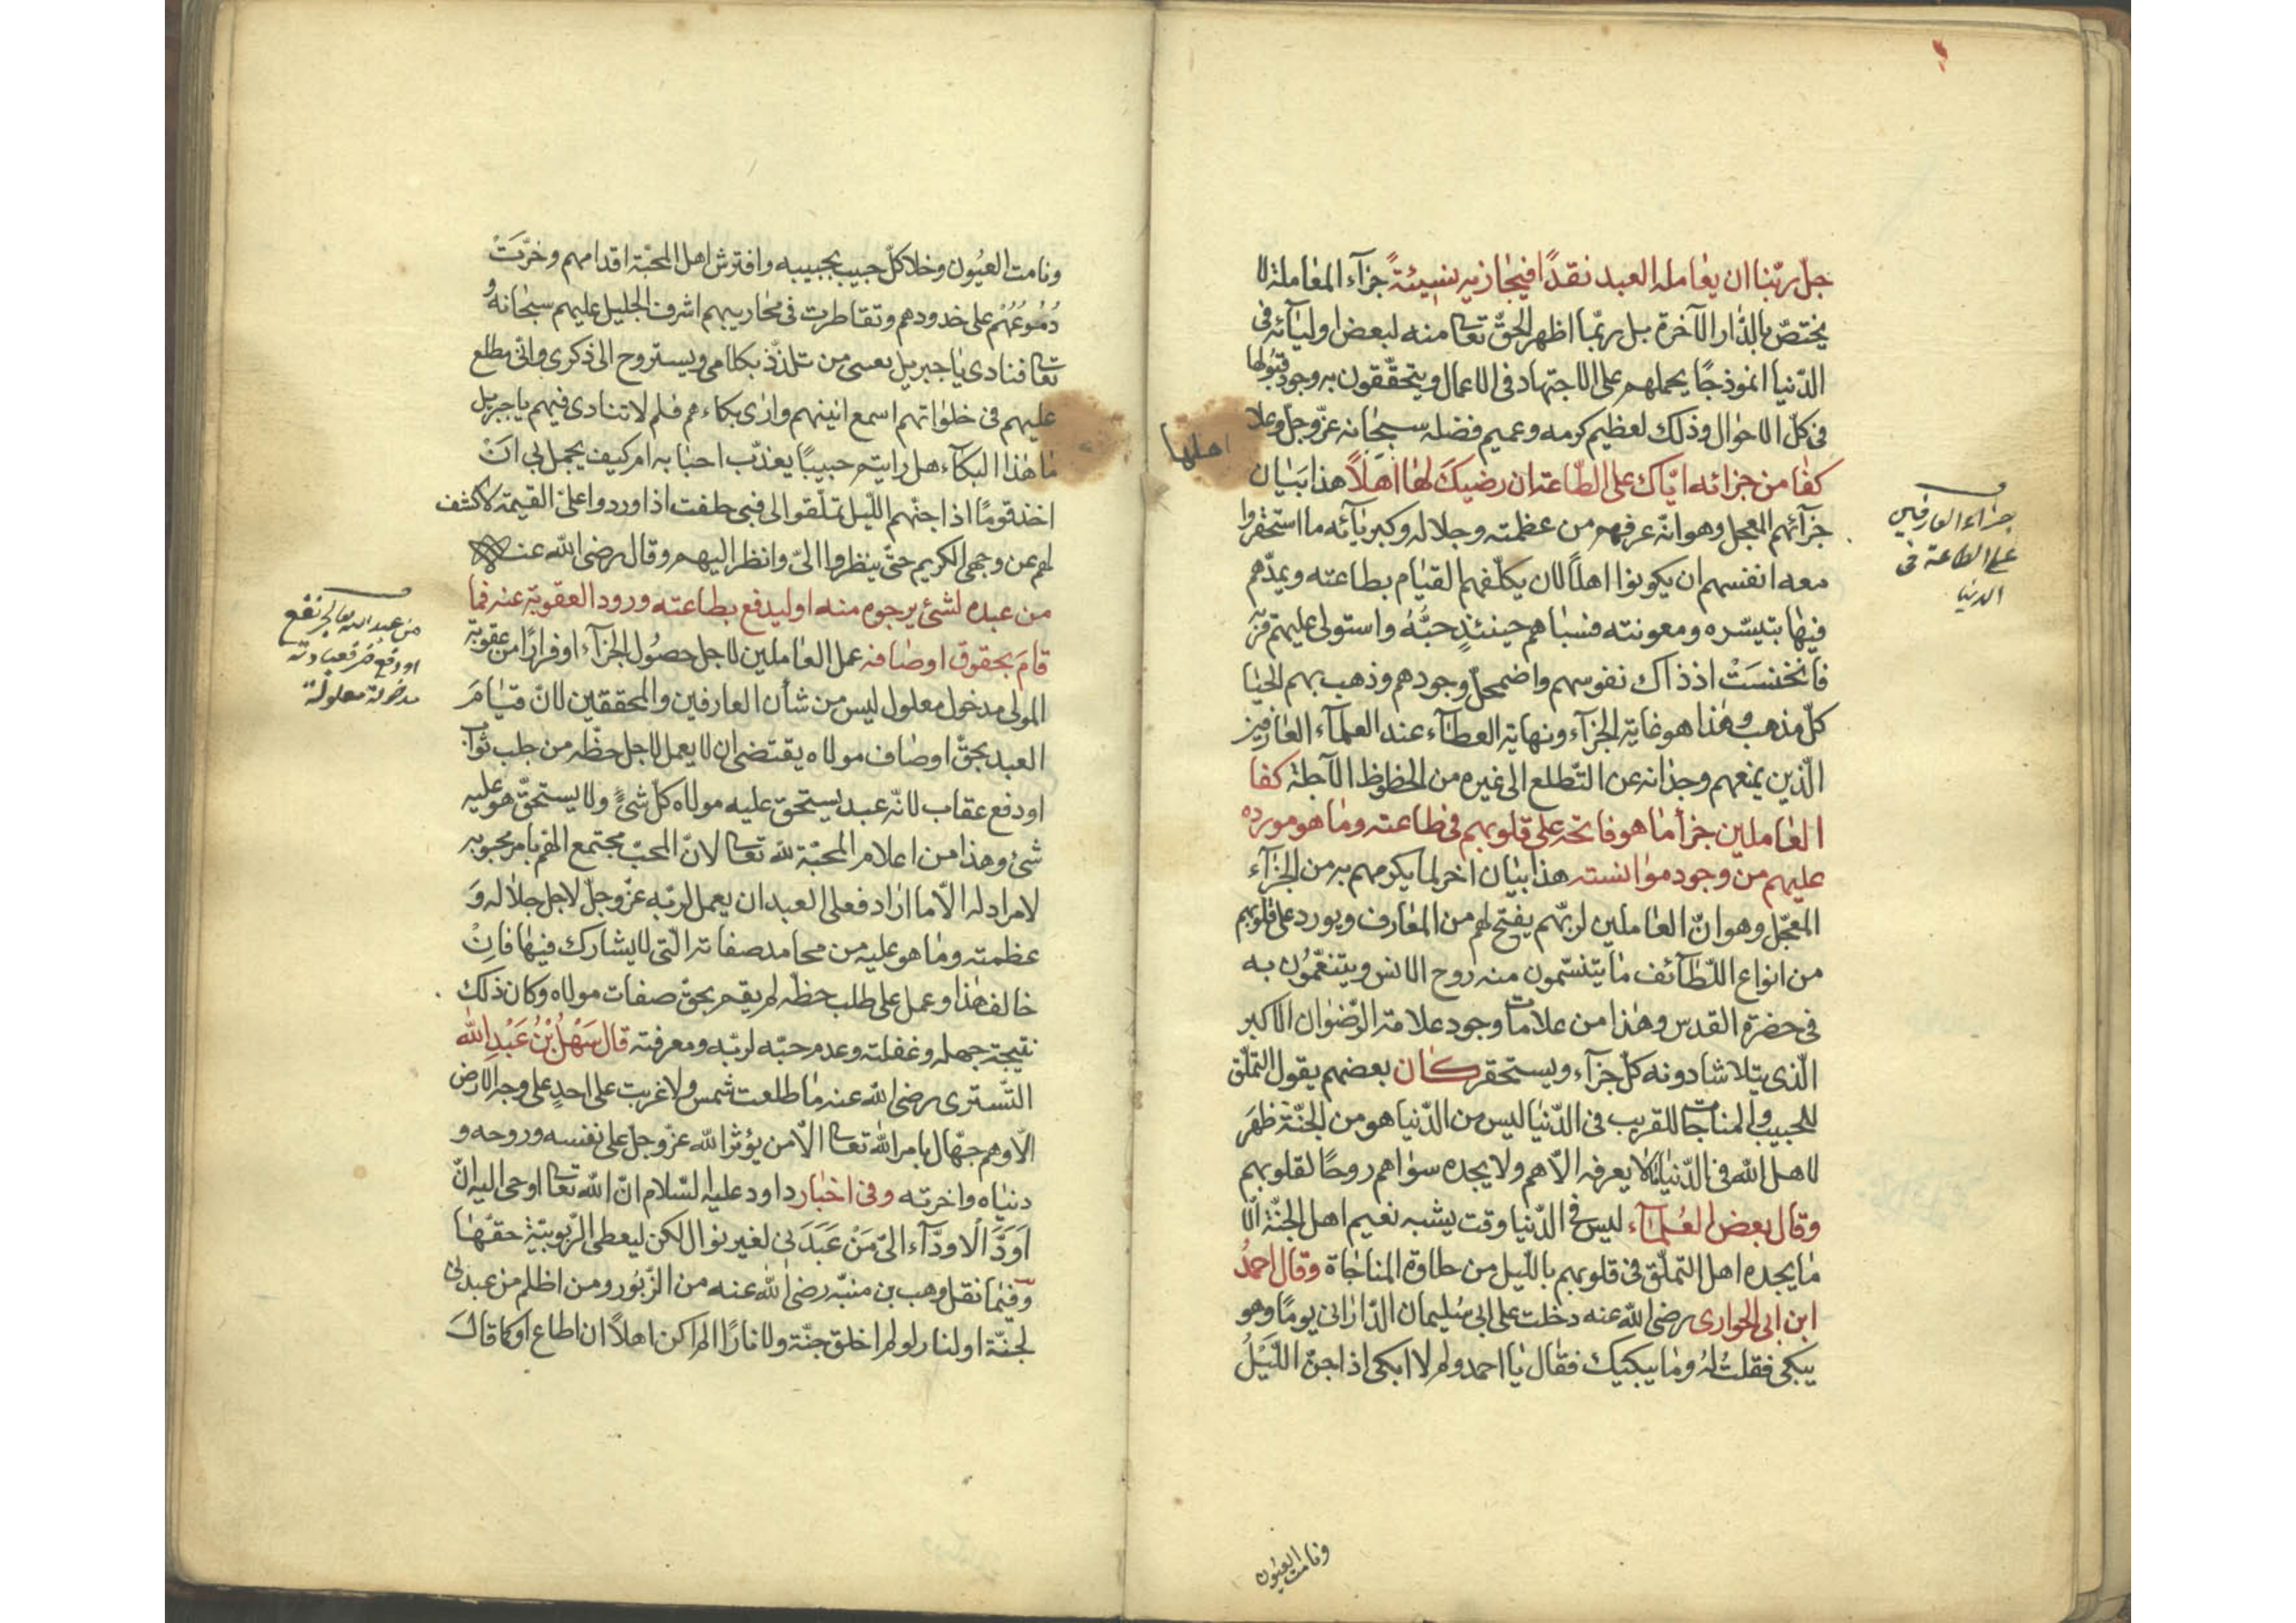 جلّ ربّنا ان يعامله العبد نقدًا فيجازيه نسيئةً جزآء المعاملة لا
يختصّ بالدّار الآخرة بل ربّما اظهر الحقّ تعا منه لبعض اوليآئه فى
الدّنيا انموذجًا يحملهم على الاجتهاد فى الاعمال ويتحقّقون به وجود قبولها
فى كلّ الاحوال وذلك لعظيم كرمه وعميم فضله سبحانه عزّ وجلّ وعلا
كفا من جزائه ايّاك على الطّاعة ان رضيك لها اهلاً هذا بيان
جزآئهم المعجل وهو انّه عرفهم من عظمته وجلاله وكبريآئه ما استحقروا
معه انفسهم ان يكونوا اهلاً لان يكلّفهم القيام بطاعته ويمدّهم
فيها بتيسّره ومعونته فسباهم حينئذٍ حبُّهُ واستولى عليهم قربه
فانخنست اذ ذاك نفوسهم واضمحلّ وجودهم وذهب بهم الحيا
كلّ مذهب وهذا هو غاية الجزآء ونهاية العطآء عند العلمآء العارفين
الّذين يمنعهم وجدانه عن التّطلع الى غيره من الحظوظ الآجلة كفا
العاملين جزآ ما هو فاتحه على قلوبهم فى طاعته وما هو مورده
عليهم من وجود موانسته هذا بيان اخر لما يكرمهم به من الجزآء
المعجّل وهو انّ العاملين لربّهم يفتح لهم من المعارف ويورد على قلوبهم
من انواع اللّطآئف ما يتنسّمون منه روح الانس ويتنعّمون به
فى حضرة القدس وهذا من علامات وجود علامة الرّضوان الاكبر
الّذى يتلاشا دونه كلّ جزآء ويستحقر كان بعضهم يقول التملّق
للحبيب والمناجات للقريب فى الدّنيا ليس من الدّنيا هو من الجنّة ظهر
لاهل الله فى الدّنيا لا يعرفه الّا هم ولا يجده سواهم روحًا لقلوبهم
وقال بعض العلمآء ليس فى الدّنيا وقت يشبه نعيم اهل الجنّة الّا
ما يجده اهل التملّق فى قلوبهم باللّيل من حلاوة المناجاة وقال احمدُ
ابن ابى الحوارى رضى الله عنه دخلت على ابى سليمان الدّارانى يومًا وهو
يبكى فقلت لهُ وما يبكيك فقال يا احمد ولم لا ابكى اذا جنّ اللّيلُ
اهلها
جزاء العارفين
على الطاعة فى
الدنيا
ونامت العيون
ونامت العيُون وخلا كلّ حبيب بحبيبه وافترش اهل المحبّة اقدامهم وخرّت
دُمُوعُهُم على خدودهم وتقاطرت فى محاريبهم اشرف الجليل عليهم سبحانه و
تعا فنادى يا جبريل بعينى من تلذّذ بكلامى ويستروح الى ذكرى وانّى مطلع
عليهم فى خلواتهم اسمع انينهم وارى بكاءهم فلم لا تنادى فيهم يا جبريل
ما هذا البكآء هل رايتم حبيبًا يعذّب احبابه ام كيف يجمل بى ان
اخذ قومًا اذا جنّهم اللّيل تملّقوا الى فبى حلفت اذا وردوا علىّ القيمة لاكشف
لهم عن وجهى الكريم حتّى ينظروا الىّ وانظر اليهم وقال رضى الله عنه
من عبده لشئ يرجوه منه او ليدفع بطاعته ورود العقوبة عنه فما
قام بحقوق اوصافه عمل العاملين لاجل حصول الجزآء او فرارًا من عقوبة
المولى مدخول معلول ليس من شأن العارفين والمحققين لانّ قيام
العبد بحقّ اوصاف مولاه يقتضى ان لا يعمل لاجل حظّه من جلب ثواب
او دفع عقاب لانّه عبد يستحق عليه مولاه كلّ شئٍ ولا يستحقّ هو عليه
شئ وهذا من اعلام المحبّة لله تعا لانّ المحبّ مجتمع الهمّ بامر محبوبه
لا مراد له الّا ما اراد فعلى العبد ان يعمل لربّه عزّ وجلّ لاجل جلاله و
عظمته وما هو عليه من محامد صفاته الّتى لا يشارك فيها فان
خالف هذا وعمل على طلب حظّه لم يقم بحقّ صفات مولاه وكان ذلك
نتيجة جهله وغفلته وعدم حبّه لربّه ومعرفته قال سَهْلُ بْنُ عَبْدِ الله
التّسترى رضى الله عنه ما طلعت شمس ولا غربت على احدٍ على وجه الارض
الّا وهم جهّال بامر الله تعا الّا من يؤثر الله عزّ وجلّ على نفسه وروحه و
دنياه واخرته وفى اخبار داود عليه السّلام انّ الله تعا اوحى اليه انّ
اَوَدَّ الْاودّآء الىّ مَنْ عَبَدَنى لغير نوال لكن ليعطى الرّبوبيّة حقّها
وفيما نقل وهب بن منبّه رضى الله عنه من الزّبور ومن اظلم من عبدنى
لجنّة او لنار لو لم اخلق جنّة ولا نارًا الم اكن اهلاً ان اطاع او كما قال
من عبد الله تعالى لجر نفع
او دفع ضر فعبادته
مدخولة معلولة